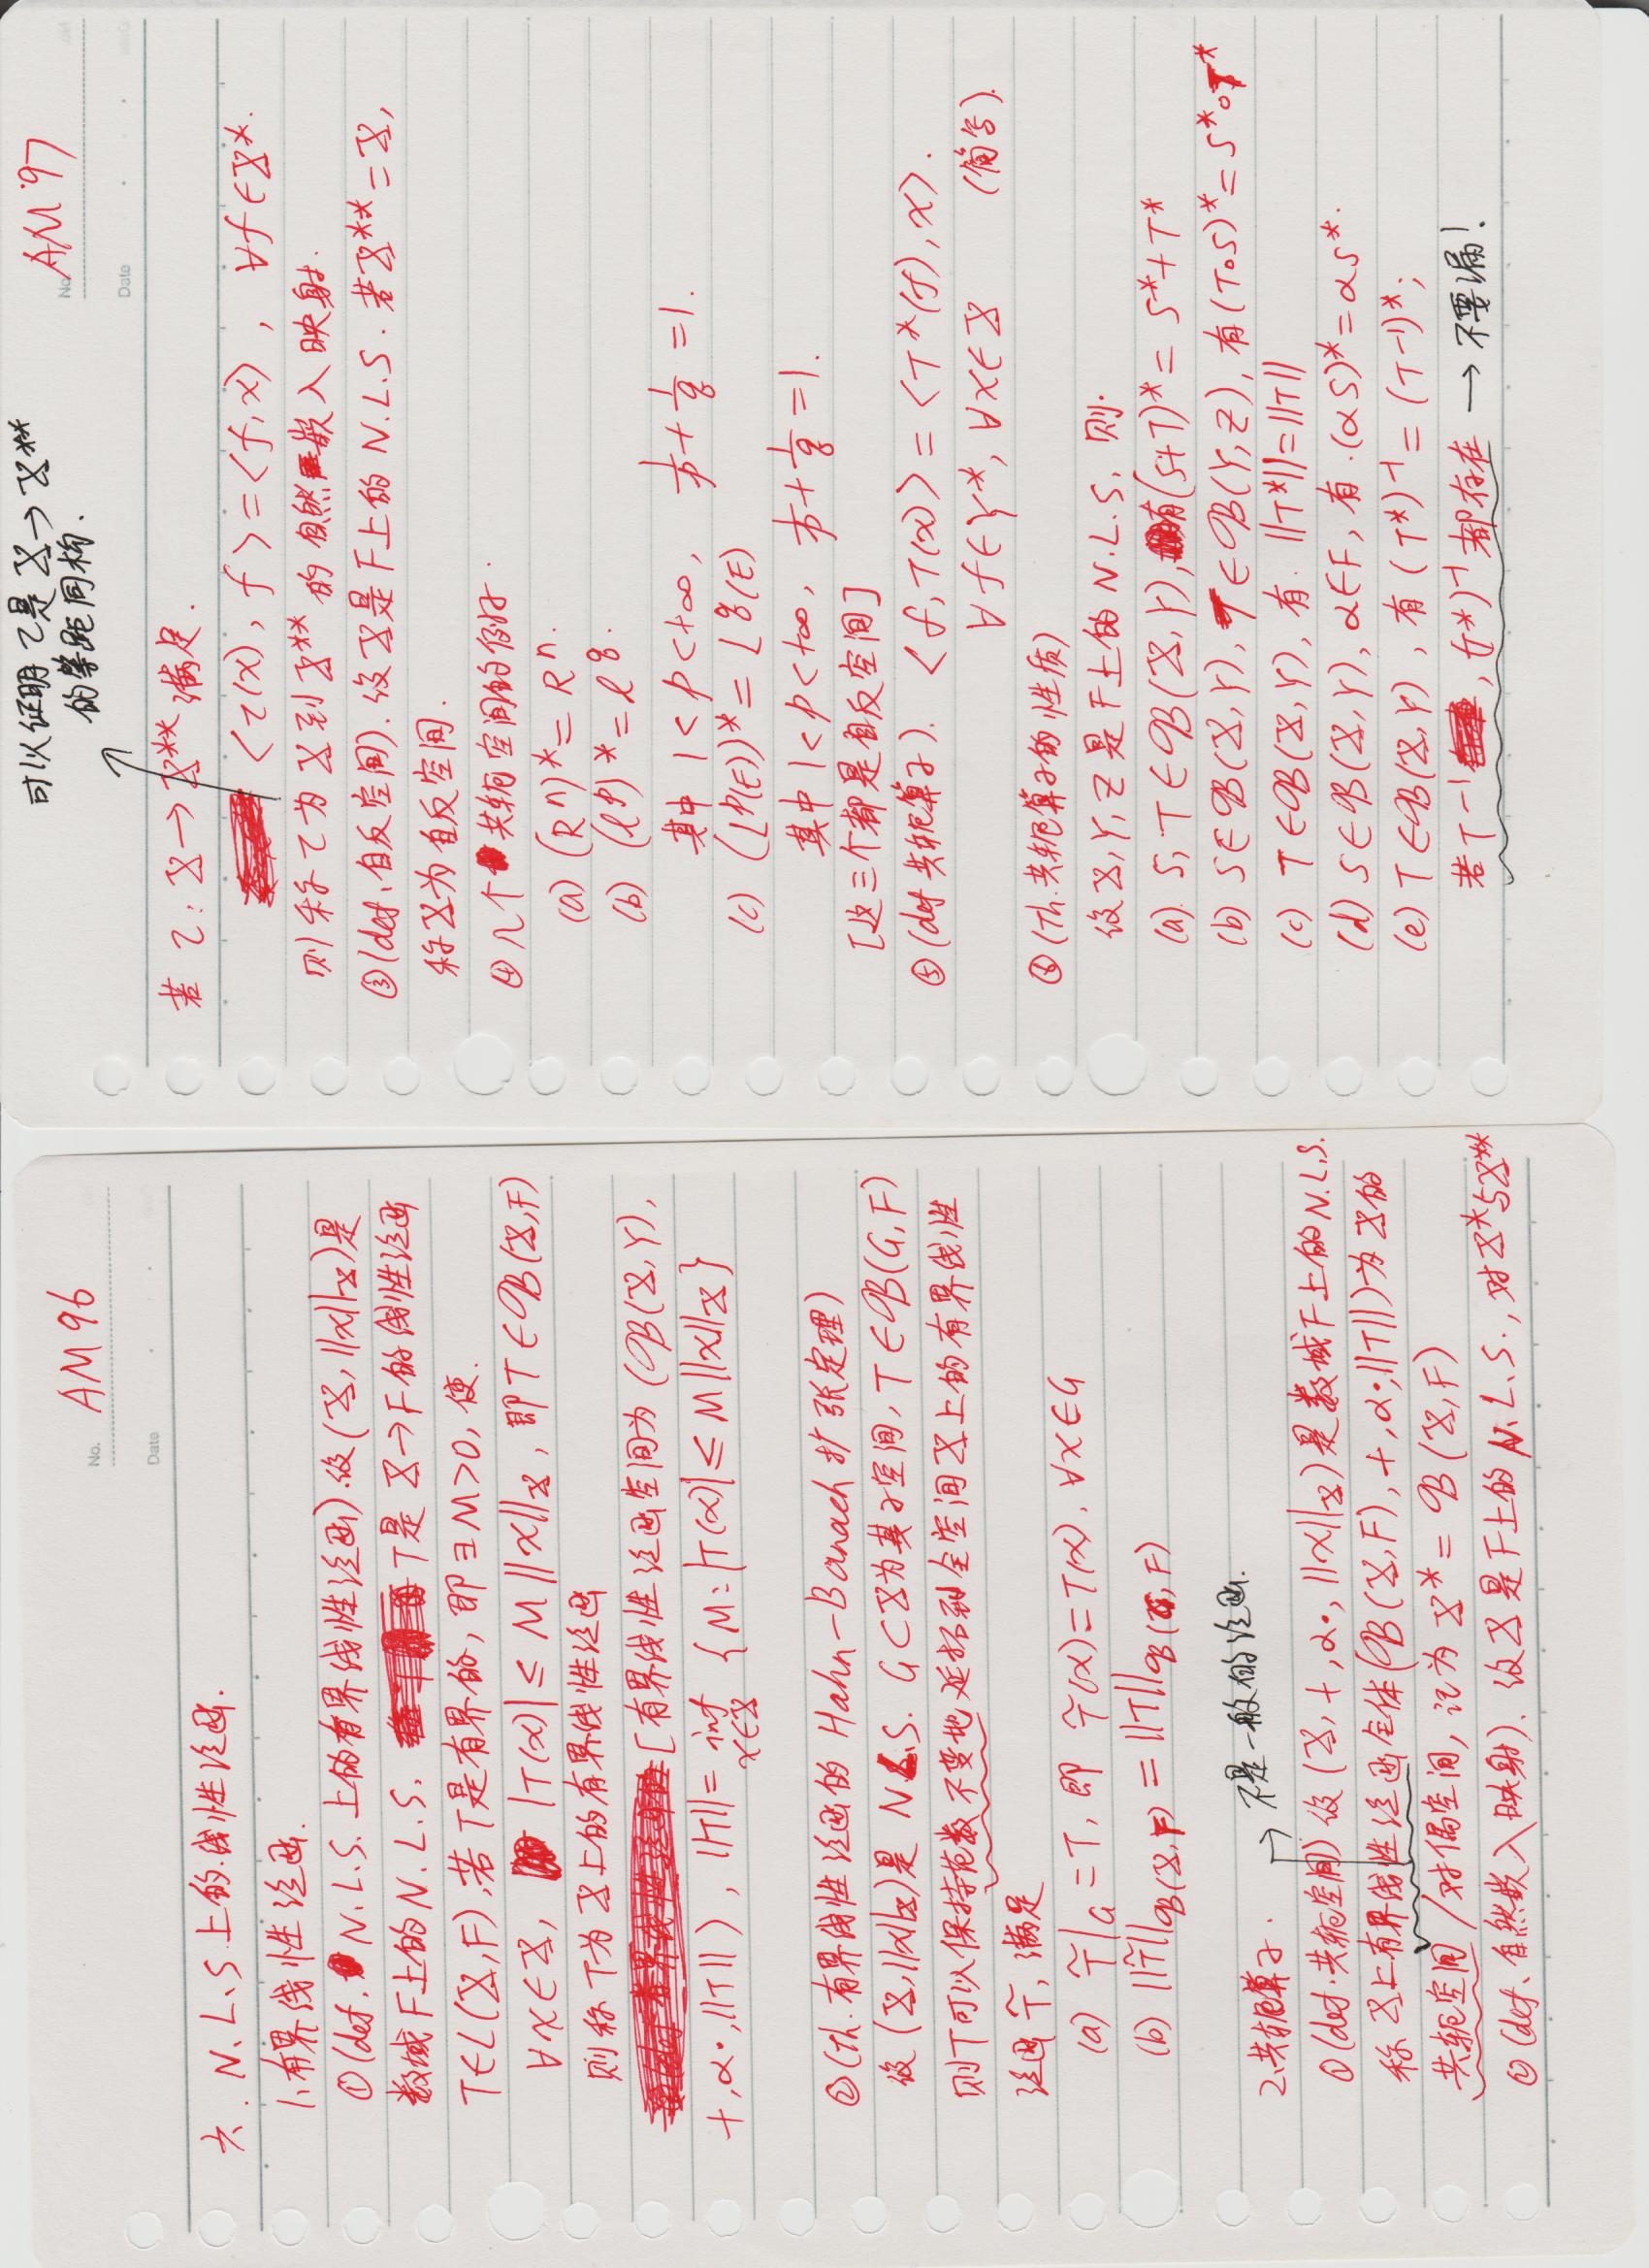 No. AM 96
Date
六. N.L.S 上的线性泛函.
1.有界线性泛函.
①(def. N.L.S. 上的有界线性泛函).设(X,||x||_X)是
数域F上的N.L.S. T是 X→F的线性泛函
T∈L(X,F),若T是有界的,即∃M>0,使.
∀x∈X, |T(x)|≤M||x||_X,即T∈B(X,F)
则称T为X上的有界线性泛函
[有界线性泛函空间为(B(X,Y),
+,α·,||T||), ||T||= inf_{x∈X} {M:|T(x)|≤M||x||_X}
②(th.有界线性泛函的Hahn-Banach扩张定理)
设(X,||x||_X)是N.L.S. G⊂X为其子空间,T∈B(G,F)
则T可以保持范数不变地延拓到全空间X上的有界线性
泛函T̃,满足
(a) T̃|_G=T,即 T̃(x)=T(x),∀x∈G
(b) ||T̃||_{B(X,F)}=||T||_{B(G,F)}
→不是一般的泛函.
2.共轭算子.
①(def.共轭空间)设(X,+,α·,||x||_X)是数域F上的N.L.S.
称X上有界线性泛函全体(B(X,F),+,α·,||T||)为X的
共轭空间/对偶空间,记为X*=B(X,F)
②(def.自然嵌入映射).设X是F上的N.L.S.,对X*与X**
可以证明τ是X→X**
的等距同构.
No. AM 97
Date
若τ:X→X**满足.
<τ(x),f>=<f,x>, ∀f∈X*.
则称τ为X到X**的自然嵌入映射.
③(def.自反空间).设X是F上的N.L.S.若X**=X,
称X为自反空间.
④几个共轭空间的例子.
(a) (Rⁿ)*=Rⁿ.
(b) (l^p)*=l^q.
其中 1<p<+∞, 1/p+1/q=1.
(c) (L^p(E))*=L^q(E)
其中1<p<+∞, 1/p+1/q=1.
[这三个都是自反空间]
⑤(def共轭算子). <f,T(x)>=<T*(f),x>.
∀f∈Y*,∀x∈X (简写).
⑥(Th.共轭算子的性质)
设X,Y,Z是F上的N.L.S,则.
(a). S,T∈B(X,Y),有(S+T)*=S*+T*
(b) S∈B(X,Y),T∈B(Y,Z),有(T∘S)*=S*∘T*
(c) T∈B(X,Y),有.||T*||=||T||
(d) S∈B(X,Y),α∈F,有.(αS)*=αS*.
(e) T∈B(X,Y),有(T*)⁻¹=(T⁻¹)*;
若T⁻¹,(T*)⁻¹都存在→不要漏!